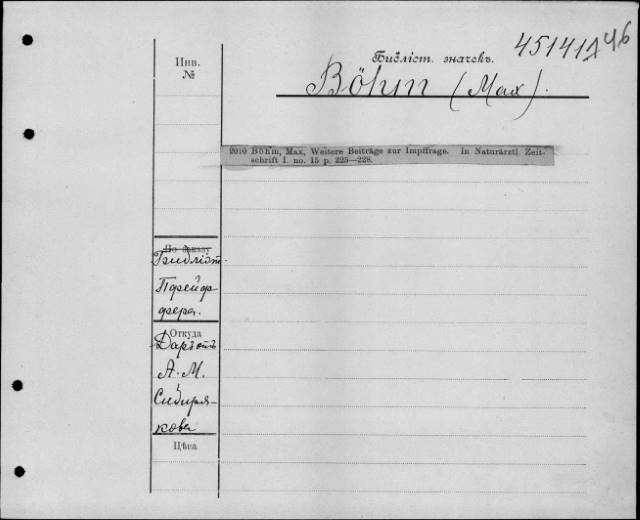 45141
46
Инв.
№
Библіот. значекъ.
Böhm (Max).
2010 Böhm, Max, Weitere Beiträge zur Impffrage. In Naturärztl. Zeit-
schrift I. no. 15 p. 225—228.
По заказу
Библіот.
Пфейф
фера.
Откуда
Даръ отъ
А. М.
Сибиря-
кова
Цѣна